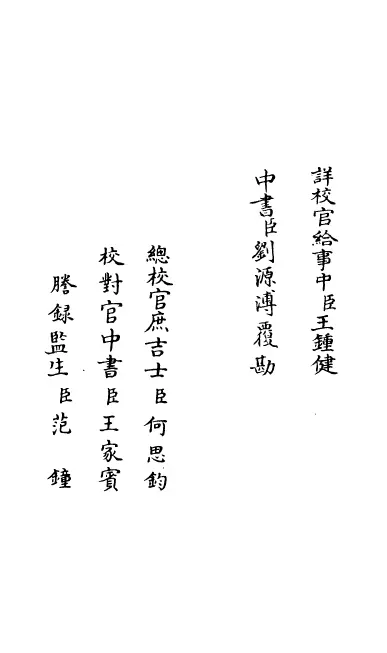 詳校官給事中臣王鍾健
中書臣劉源溥覆勘
總校官庶吉士臣何思鈞
校對官中書臣王家賓
謄録監生臣范鐘